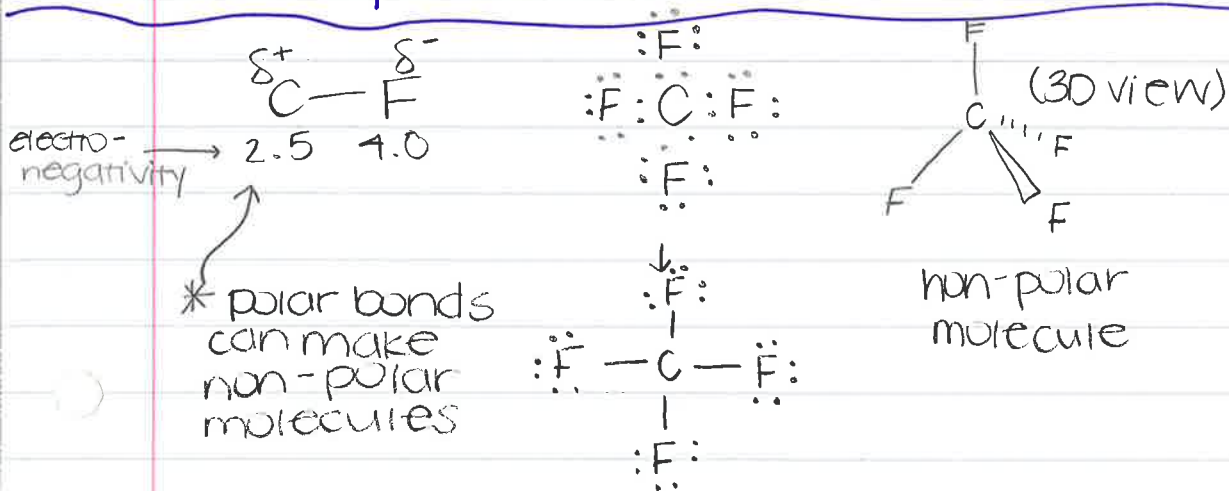 δ+ δ-
C — F
electro-
negativity → 2.5 4.0
* polar bonds
can make
non-polar
molecules
:F:
:F:C:F:
:F:
↓
:F:
:F — C — F:
:F:
F
C
F
F
F
(3D view)
non-polar
molecule